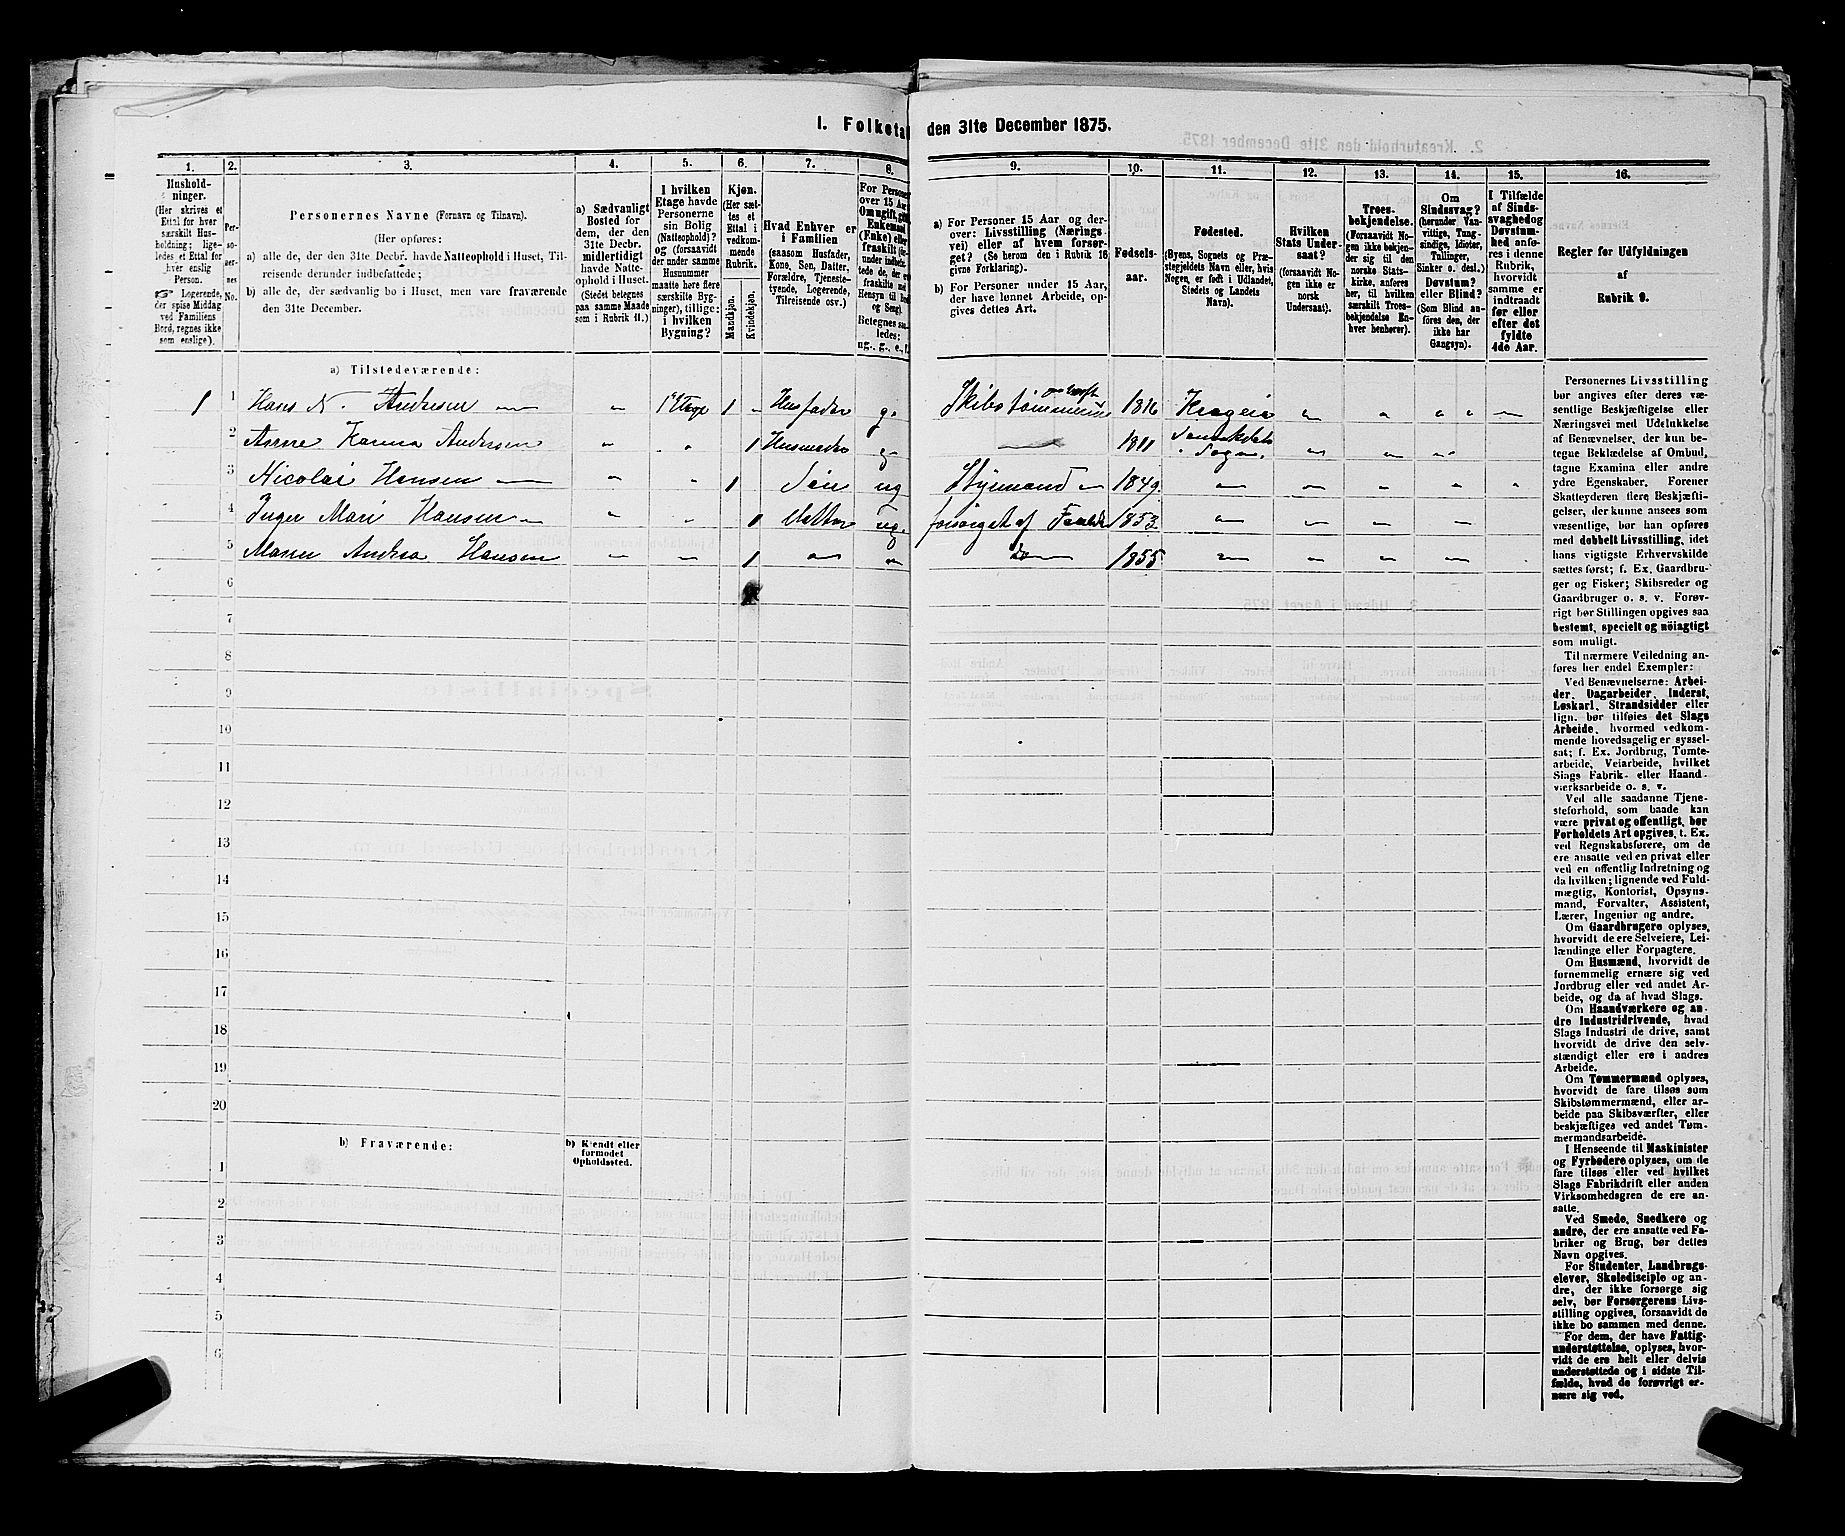 I. Folketal
den 31te December 1875.
1.
2.
3.
4.
5.
6.
7.
8.
Hushold-
ninger.
(Her skrives et
Ettal for hver
særskilt Hus-
holdning; lige-
ledes et Ettal for
hver enslig
Person.
Logerende,
der spise Middag
ved Familiens
Bord, regnes ikke
som enslige).
Per-
so-
ner-
nes
No.
Personernes Navne (Fornavn og Tilnavn).
(Her opføres:
a) alle de, der den 31te Decbr. havde Natteophold i Huset, Til-
reisende derunder indbefattede;
b) alle de, der sædvanlig bo i Huset, men vare fraværende
den 31te December.
a) Sædvanligt
Bosted for
dem, der den
31te Decbr.
midlertidigt
havde Natte-
ophold i Huset.
(Stedet betegnes
paa samme Maade
som i Rubrik 11.)
I hvilken
Etage havde
Personerne
sin Bolig
(Natteophold)?
og (forsaavidt
der under samme
Husnummer
maatte høre flere
særskilte Byg-
ninger), tillige:
i hvilken
Bygning?
Kjøn.
(Her sæt-
tes et
Ettal i
vedkom-
mende
Rubrik.
Mandkjøn.
Kvindekjøn.
Hvad Enhver er
i Familien
(saasom Husfader,
Kone, Søn, Datter,
Forældre, Tjeneste-
tyende, Logerende,
Tilreisende osv.)
For Personer
over 15 Aar:
Om ugift, gift,
Enkemand
(Enke) eller
fraskilt
Betegnes saa-
ledes:
ug., g., e., f.
a) Tilstedeværende:
1 1 Hans N. Andersen " 1 Etage 1 " Husfader g.
2 Anne Karina Andersen " " 1 Husmoder g.
3 Nicolai Hansen " " 1 Søn ug
4 Inger Mari Hansen " " 1 Datter ug.
5 Maren Andrea Hansen " " 1 " "
6
7
8
9
10
11
12
13
14
15
16
17
18
19
20
b) Fraværende:
b) Kjendt eller
formodet
Opholdssted.
1
2
3
4
5
6
9.
10.
11.
12.
13.
14.
15.
16.
a) For Personer 15 Aar og der-
over: Livsstilling (Nærings-
vei) eller af hvem forsør-
get? (Se herom den i Rubrik 16
givne Forklaring).
b) For Personer under 15 Aar,
der have lønnet Arbeide, op-
gives dettes Art.
Fødsels-
aar.
Fødested.
(Byens, Sognets og Præ-
stegjeldets Navn eller, hvis
Nogen er født i Udlandet,
Stedets og Landets
Navn).
Hvilken
Stats Under-
saat?
(forsaavidt No-
gen ikke er
norsk
Undersaat).
Troes-
bekjendelse.
(Forsaavidt No-
gen ikke bekjen-
der sig til den
norske Stats-
kirke, anføres
her, til hvilken
særskilt Troes-
bekjendelse En-
hver henhører).
Om
Sindssvag?
(herunder Van-
vittige, Tung-
sindige, Idioter,
Tullinger,
Sinker o. desl.)
Døvstum?
eller Blind?
(Som Blind an-
føres den, der
ikke har
Gangsyn).
I Tilfælde
af Sinds-
svaghed og
Døvstum-
hed anfø-
res i denne
Rubrik,
hvorvidt
samme er
indtraadt
før eller
efter det
fyldte
4de Aar.
Regler for Udfyldningen
af
Rubrik 9.
Skibstømmermand 1816 Kragerø " " " " "
" 1811 Sannikdals Sogn. " " "
Styrmand " 1849. " " " " "
forsørget af Forældre 1853. " " " "
Do 1855 " " " " "
Personernes Livsstilling
bør angives efter deres væ-
sentlige Beskjæftigelse eller
Næringsvei med Udelukkelse
af Benævnelser, der kun be-
tegne Beklædelse af Ombud,
tagne Examina eller andre
ydre Egenskaber. Forener
Skatteyderen flere Beskjæfti-
gelser, der kunne ansees som
væsentlige, bør han opføres
med dobbelt Livsstilling, idet
hans vigtigste Erhvervskilde
sættes først; f. Ex. Gaardbru-
ger og Fisker; Skibsreder og
Gaardbruger o. s. v. Forøv-
rigt bør Stillingen opgives saa
bestemt, specielt og nöiagtigt
som muligt.
Til nærmere Veiledning an-
føres her endel Exempler:
Ved Benævnelserne: Arbei-
der, Dagarbeider, Inderst,
Løskarl, Strandsidder eller
lign. bør tilføies det Slags
Arbeide, hvormed vedkom-
mende hovedsagelig er syssel-
sat; f. Ex. Jordbrug, Tomte-
arbeide, Veiarbeide, hvilket
Slags Fabrik- eller Haand-
værksarbeide o. s. v.
Ved alle saadanne Tjene-
steforhold, som baade kan
være privat og offentligt, bør
Forholdets Art opgives, t. Ex.
ved Regnskabsførere, om de
ere ansatte ved en privat eller
ved en offentlig Indretning og
da hvilken; lignende ved Fuld-
mægtig, Kontorist, Opsyns-
mand, Forvalter, Assistent,
Lærer, Ingeniør og andre.
Om Gaardbrugere oplyses,
hvorvidt de ere Selveiere, Lei-
lændinge eller Forpagtere.
Om Husmænd, hvorvidt de
fornemmelig ernære sig ved
Jordbrug eller ved andet Ar-
beide, og da af hvad Slags.
Om Haandværkere og an-
dre Industridrivende, hvad
Slags Industri de drive, samt
hvorvidt de drive den selv-
stændigt eller ere i andres
Arbeide.
Om Tømmermænd oplyses,
hvorvidt de fare tilsøs som
Skibstømmermænd, eller ar-
beide paa Skibsværfter, eller
beskjæftiges ved andet Tøm-
mermandsarbeide.
I Henseende til Maskinister
og Fyrbødere oplyses, om de
fare tilsøs eller ved hvilket
Slags Fabrikdrift eller anden
Virksomhedsgren de ere an-
satte.
Ved Smede, Snedkere og
andre, der ere ansatte ved Fa-
briker og Brug, bør dettes
Navn opgives.
For Studenter, Landbrugs-
elever, Skoledisciple og an-
dre, der ikke forsørge sig
selv, bør Forsørgerens Livs-
stilling opgives, forsaavidt de
ikke bo sammen med denne.
For dem, der have Fattig-
understøttelse, oplyses, hvor-
vidt de ere helt eller delvis
understøttede og i sidste Til-
fælde, hvad de forøvrigt er-
nære sig ved.